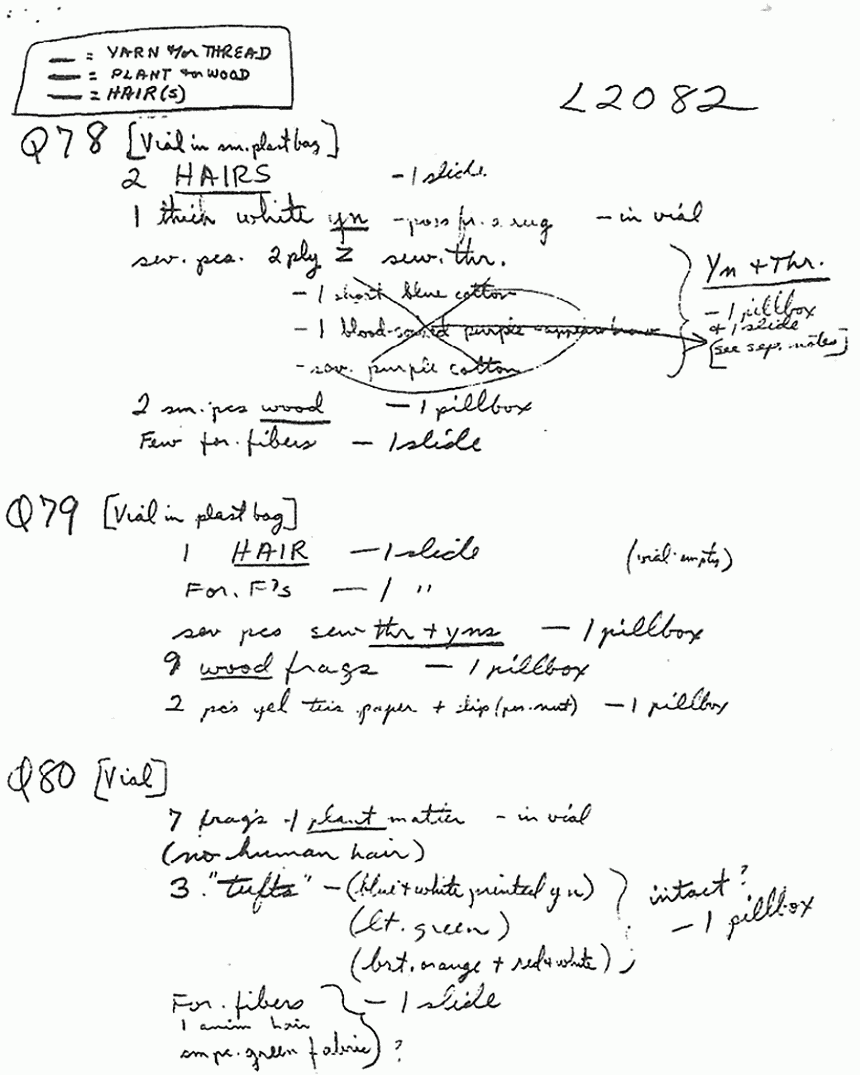 — = YARN &/or THREAD
— = PLANT &/or WOOD
— = HAIR(S)
L2082
Q78 [Vial in sm. plast bag]
2 HAIRS - 1 slide
1 thick white yn - poss fr. a rug - in vial
sev. pcs. 2 ply Z sew. thr.
- 1 short blue cotton
- 1 blood-soaked purple
- sev. purple cotton
Yn + Thr.
- 1 pillbox
+ 1 slide
[see sep. notes]
2 sm. pcs wood - 1 pillbox
Few for. fibers - 1 slide
Q79 [Vial in plast bag]
1 HAIR - 1 slide (vial empty)
For. F's - 1 "
sev pcs sew thr + yns - 1 pillbox
9 wood frags - 1 pillbox
2 pcs yel tis. paper + - 1 pillbox
Q80 [Vial]
7 frags of plant matter - in vial
(no human hair)
3 "tufts" - (blue + white printed yn)
(lt. green)
(brt. orange + red + white)
intact?
- 1 pillbox
For. fibers - 1 slide
1 anim hair
sm pc. green fabric ?